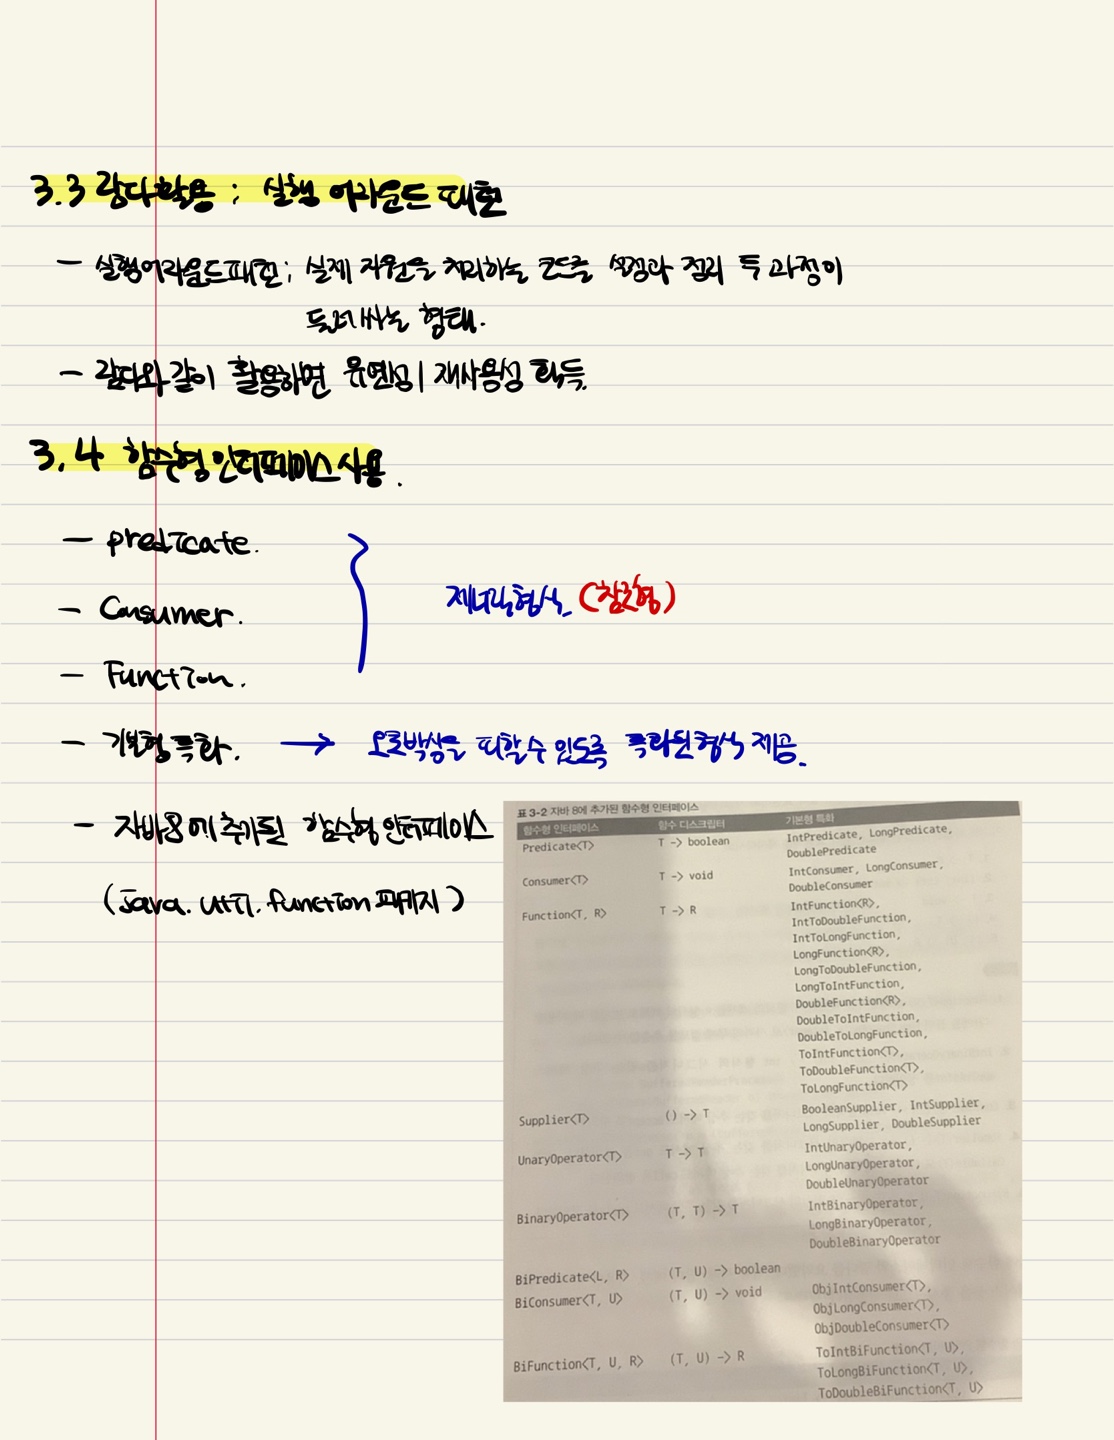 3.3 람다활용 ; 실행 어라운드 패턴
- 실행어라운드패턴 ; 실제 자원을 처리하는 코드를 설정과 정리 두 과정이
둘러싸는 형태.
- 람다와 같이 활용하면 유연성 / 재사용성 획득.
3.4 함수형 인터페이스 사용.
- predicate.
- Consumer.
- Function.
제너릭형식. (참조형)
- 기본형특화. → 오토박싱을 피할 수 있도록 특화된 형식 제공.
- 자바8에 추가된 함수형 인터페이스
(java.util.function 패키지)
표 3-2 자바 8에 추가된 함수형 인터페이스
함수형 인터페이스 함수 디스크립터 기본형 특화
Predicate<T> T -> boolean IntPredicate, LongPredicate,
DoublePredicate
Consumer<T> T -> void IntConsumer, LongConsumer,
DoubleConsumer
Function<T, R> T -> R IntFunction<R>,
IntToDoubleFunction,
IntToLongFunction,
LongFunction<R>,
LongToDoubleFunction,
LongToIntFunction,
DoubleFunction<R>,
DoubleToIntFunction,
DoubleToLongFunction,
ToIntFunction<T>,
ToDoubleFunction<T>,
ToLongFunction<T>
Supplier<T> () -> T BooleanSupplier, IntSupplier,
LongSupplier, DoubleSupplier
UnaryOperator<T> T -> T IntUnaryOperator,
LongUnaryOperator,
DoubleUnaryOperator
BinaryOperator<T> (T, T) -> T IntBinaryOperator,
LongBinaryOperator,
DoubleBinaryOperator
BiPredicate<L, R> (T, U) -> boolean
BiConsumer<T, U> (T, U) -> void ObjIntConsumer<T>,
ObjLongConsumer<T>,
ObjDoubleConsumer<T>
BiFunction<T, U, R> (T, U) -> R ToIntBiFunction<T, U>,
ToLongBiFunction<T, U>,
ToDoubleBiFunction<T, U>